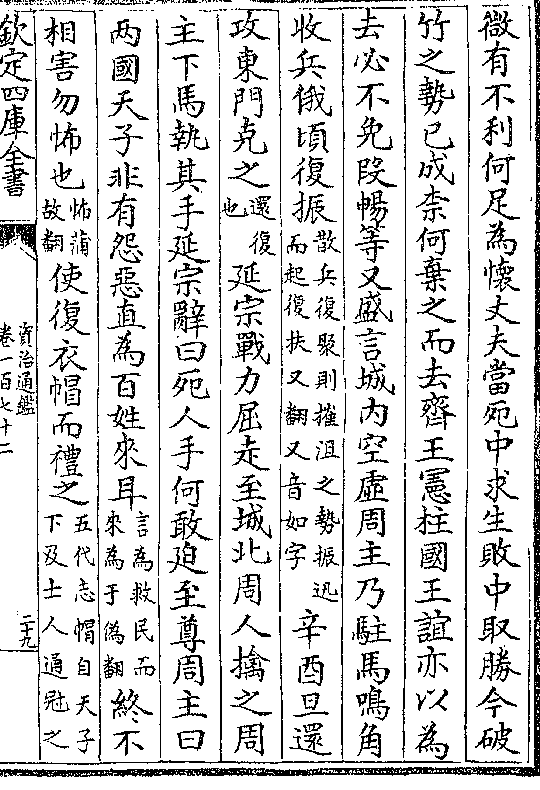 微有不利何足為懷丈夫當死中求生敗中取勝今破
竹之勢已成柰何棄之而去齊王憲柱國王誼亦以為
去必不免段暢等又盛言城内空虛周主乃駐馬鳴角
收兵俄頃復振散兵復聚則摧沮之勢振迅而起復扶又翻又音如字辛酉旦還
攻東門克之還復也延宗戰力屈走至城北周人擒之周
主下馬執其手延宗辭曰死人手何敢廹至尊周主曰
兩國天子非有怨惡直為百姓來耳言為救民而來為于偽翻終不
相害勿怖也怖蒲故翻使復衣帽而禮之五代志帽自天子下及士人通冠之
欽定四庫全書
資治通鑑
卷一百七十二
二十九